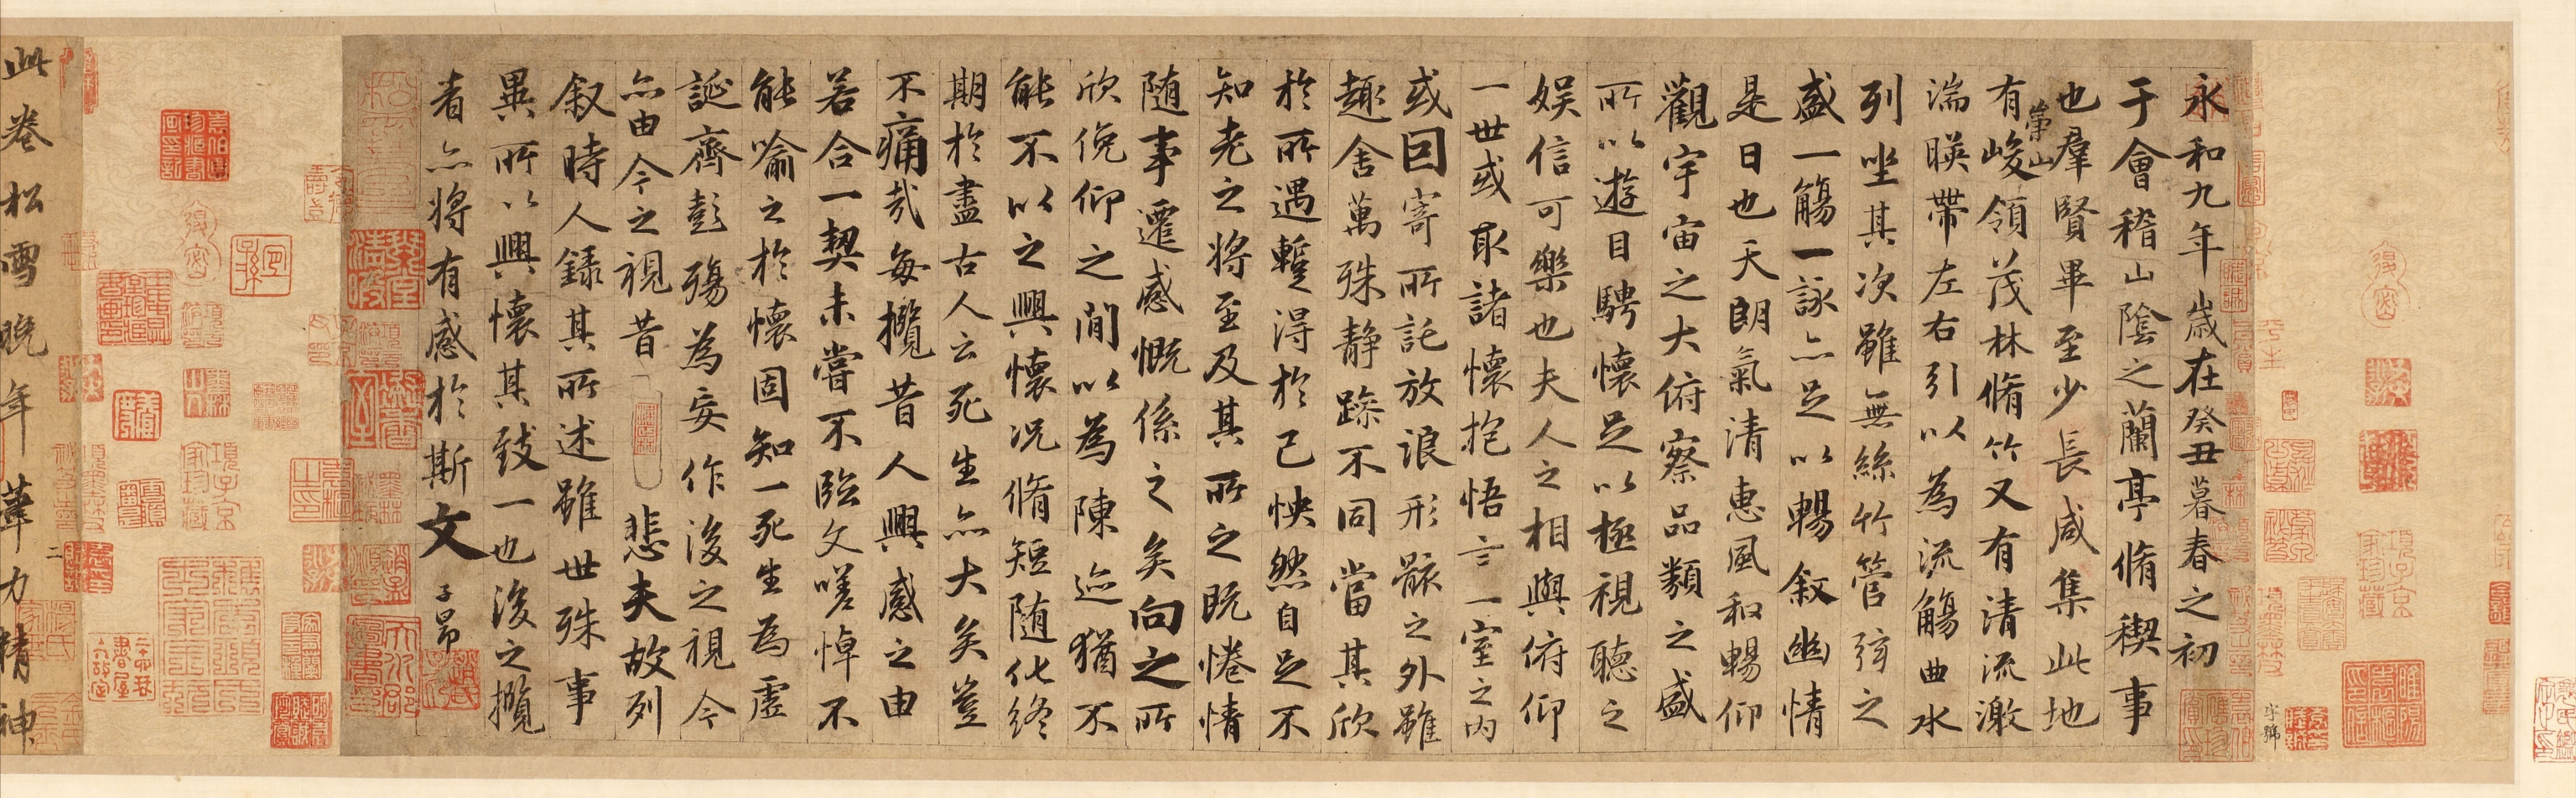 永和九年歲在癸丑暮春之初
于會稽山陰之蘭亭脩稧事
也羣賢畢至少長咸集此地
有崇山峻領茂林脩竹又有清流激
湍暎帶左右引以為流觴曲水
列坐其次雖無絲竹管弦之
盛一觴一詠亦足以暢叙幽情
是日也天朗氣清惠風和暢仰
觀宇宙之大俯察品類之盛
所以遊目騁懷足以極視聽之
娱信可樂也夫人之相與俯仰
一世或取諸懷抱悟言一室之内
或因寄所託放浪形骸之外雖
趣舍萬殊静躁不同當其欣
於所遇蹔得於己怏然自足不
知老之將至及其所之既惓情
随事遷感慨係之矣向之所
欣俛仰之間以為陳迹猶不
能不以之興懷况脩短随化終
期於盡古人云死生亦大矣豈
不痛哉每攬昔人興感之由
若合一契未嘗不臨文嗟悼不
能喻之於懷固知一死生為虛
誕齊彭殤為妄作後之視今
亦由今之視昔 悲夫故列
叙時人録其所述雖世殊事
異所以興懷其致一也後之攬
者亦將有感於斯文 子昂
此卷松雪晚年筆力精神